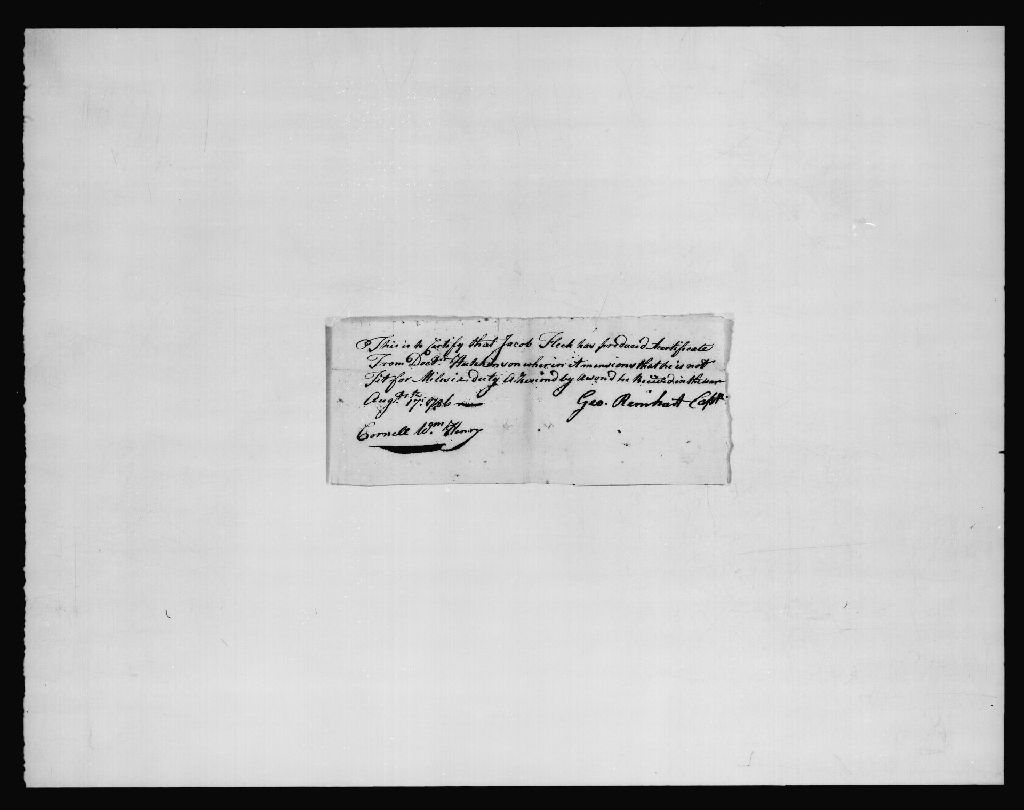 This is to Certify that Jacob Fleck has produced Certificate
From Doctr Hutchenson wherin it mensions that he is not
Fit for Milisia duty by a wound he Received in the war
Augst 17th 1786
Geo. Reinhart Capt.
Cornell Wm Henry